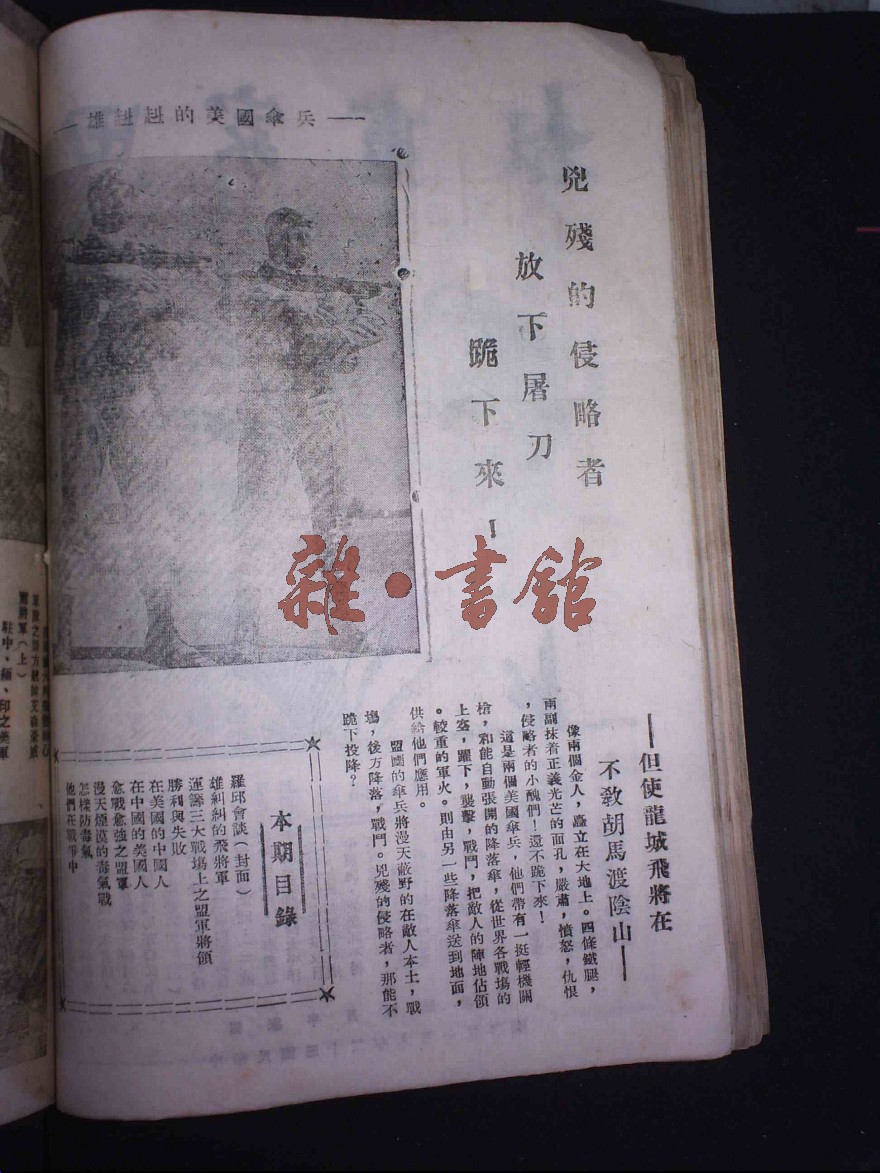 兇殘的侵略者
放下屠刀
跪下來！
—雄赳赳的美國傘兵—
—但使龍城飛將在
不教胡馬渡陰山—
像兩個金人，矗立在大地上。四條鐵腿，
兩副抹着正義光芒的面孔，嚴肅，憤怒，仇恨
，侵略者的小醜們！還不跪下來！
這是兩個美國傘兵，他們帶有一挺輕機關
槍，和能自動張開的降落傘，從世界各戰塲的
上空，躍下，襲擊，戰鬥，把敵人的陣地佔領
。較重的軍火。則由另一些降落傘送到地面，
供給他們應用。
盟國的傘兵將漫天蔽野的在敵人本土，戰
塲，後方降落，戰鬥。兇殘的侵略者，那能不
跪下投降？
本期目錄
羅邱會談（封面）
雄糾糾的飛將軍
運籌三大戰塲上之盟軍將領
勝利與失敗
在美國的中國人
在中國的美國人
愈戰愈強之盟軍
漫天煙漠的毒氣戰
怎樣防毒氣
他們在戰爭中
雜·書館
駐中、緬、印之美軍